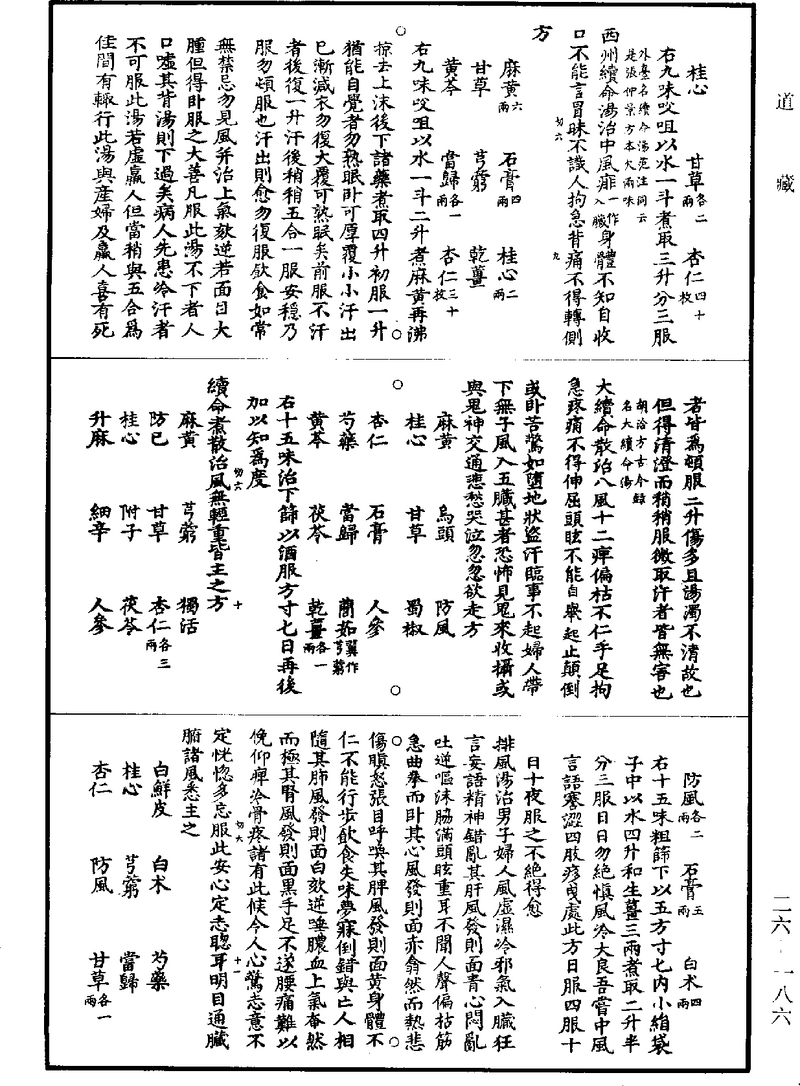 道藏
桂心　甘草各二兩　杏仁四十枚
右九味㕮咀以水一斗煮取三升分三服
外臺名續命湯范汪同云是張仲景方本欠兩味
西州續命湯治中風痱一作入臟身體不知自收
口不能言冒昧不識人拘急背痛不得轉側
方
麻黃六兩　石膏四兩　桂心二兩
甘草　芎藭　乾薑
黃芩　當歸各一兩　杏仁三十枚
右九味㕮咀以水一斗二升煮麻黃再沸
掠去上沫後下諸藥煮取四升初服一升
猶能自覺者勿熟眠卧可厚覆小小汗出
已漸減衣勿復大覆可熟眠矣前服不汗
者後復一升汗後稍稍五合一服安穩乃
服勿頓服也汗出則愈勿復服飲食如常
無禁忌勿見風并治上氣欬逆若面目大
腫但得卧服之大善凡服此湯不下者人
口噓其背湯則下過矣病人先患冷汗者
不可服此湯若虛羸人但當稍與五合爲
佳間有輒行此湯與產婦及羸人喜有死
者皆爲頓服二升傷多且湯濁不清故也
但得清澄而稍稍服微取汗者皆無害也
胡洽方古今錄名大續命湯
大續命散治八風十二痺偏枯不仁手足拘
急疼痛不得伸屈頭眩不能自舉起止顛倒
或卧苦驚如墮地狀盜汗臨事不起婦人帶
下無子風入五臟甚者恐怖見鬼來收攝或
與鬼神交通悲愁哭泣忽忽欲走方
麻黃　烏頭　防風
桂心　甘草　蜀椒
杏仁　石膏　人參
芍藥　當歸　䕡茹翼作芎藭
黃芩　茯苓　乾薑各一兩
右十五味治下篩以酒服方寸七日再後
加以知爲度
續命煮散治風無輕重皆主之方
麻黃　芎藭　獨活
防己　甘草　杏仁各三兩
桂心　附子　茯苓
升麻　細辛　人參
防風各二兩　石膏五兩　白术四兩
右十五味粗篩下以五方寸七內小絹袋
子中以水四升和生薑三兩煮取二升半
分三服日日勿絕慎風冷大良吾嘗中風
言語蹇澀四肢疼曳處此方日服四服十
日十夜服之不絕得愈
排風湯治男子婦人風虛濕冷邪氣入臟狂
言妄語精神錯亂其肝風發則面青心悶亂
吐逆嘔沫脇滿頭眩重耳不聞人聲偏枯筋
急曲拳而卧其心風發則面赤翕然而熱悲
傷嗔怒張目呼喚其脾風發則面黃身體不
仁不能行步飲食失味夢寐倒錯與亡人相
隨其肺風發則面白欬逆唾膿血上氣奄然
而極其腎風發則面黑手足不遂腰痛難以
俛仰痺冷骨疼諸有此候令人心驚志意不
定恍惚多忘服此安心定志聰耳明目通臟
腑諸風悉主之
白鮮皮　白术　芍藥
桂心　芎藭　當歸
杏仁　防風　甘草各一兩
二六－一八六